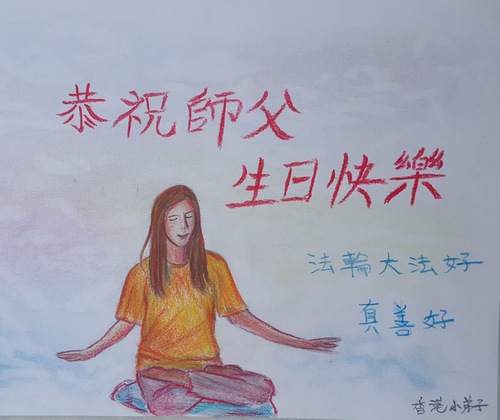 恭祝師父
生日快樂
法輪大法好
真善好
香港小弟子